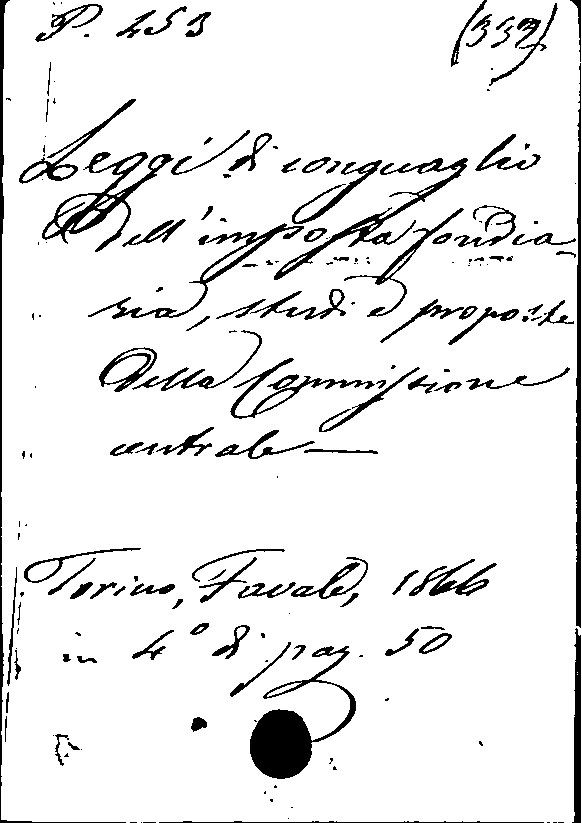 P. 453 (332)
Leggi di conguaglio
dell'imposta fondia-
ria, studi e proposte
della Commissione
centrale —
Torino, Favale, 1866
in 4° di pag. 50